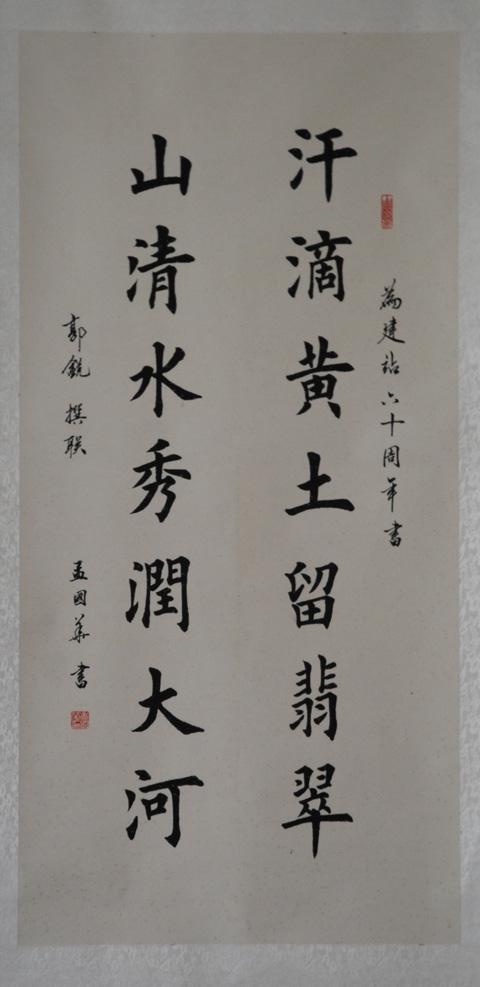 為建站六十周年書
汗滴黄土留翡翠
山清水秀潤大河
郭銳 撰联
孟國華 書